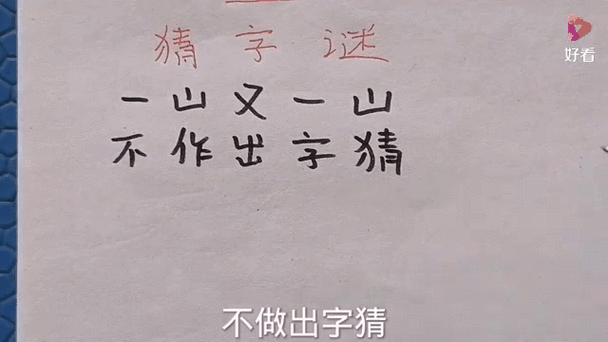 好看
猜字谜
一山又一山
不作出字猜
不做出字猜